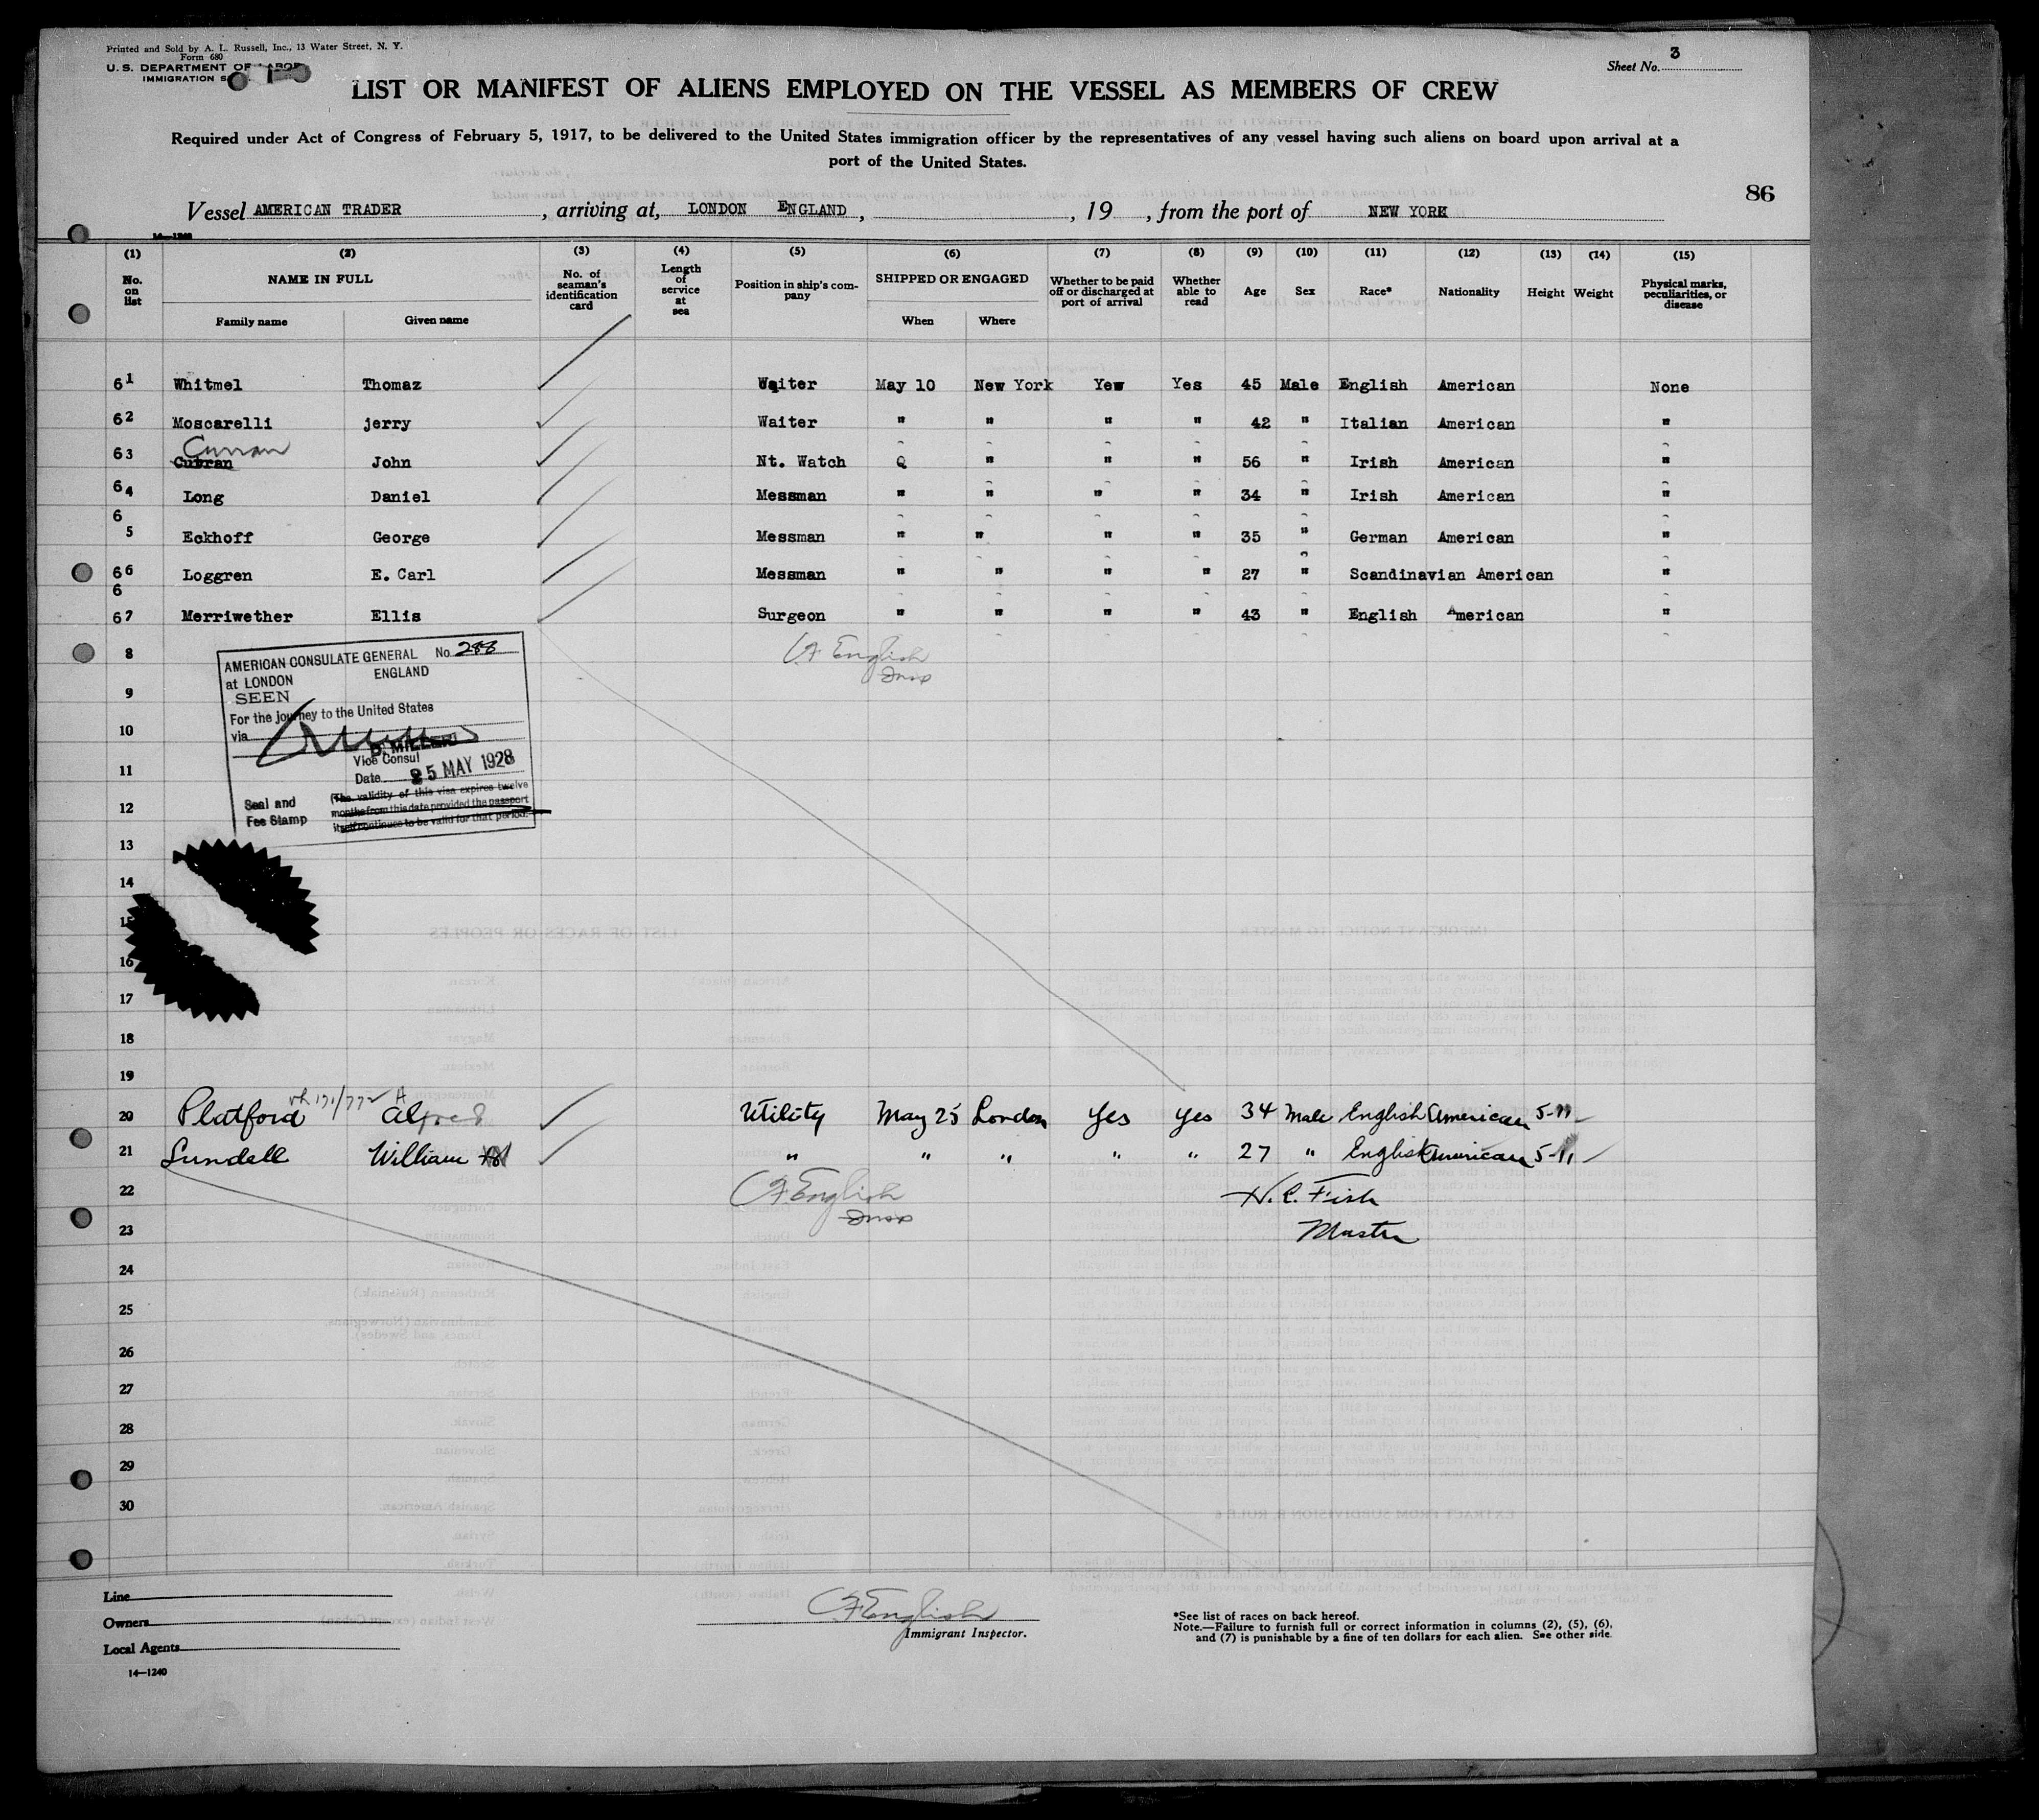 Printed and Sold by A. L. Russell, Inc., 13 Water Street, N. Y.
Form 680
U. S. DEPARTMENT OF LABOR
IMMIGRATION
Sheet No. 3
LIST OR MANIFEST OF ALIENS EMPLOYED ON THE VESSEL AS MEMBERS OF CREW
Required under Act of Congress of February 5, 1917, to be delivered to the United States immigration officer by the representatives of any vessel having such aliens on board upon arrival at a
port of the United States.
86
Vessel AMERICAN TRADER, arriving at, LONDON ENGLAND, , 19 , from the port of NEW YORK
14—1240
(1) (2) (3) (4) (5) (6) (7) (8) (9) (10) (11) (12) (13) (14) (15)
No. on list NAME IN FULL No. of seaman's identification card Length of service at sea Position in ship's company SHIPPED OR ENGAGED Whether to be paid off or discharged at port of arrival Whether able to read Age Sex Race* Nationality Height Weight Physical marks, peculiarities, or disease
Family name Given name When Where
61 Whitmel Thomaz Waiter May 10 New York Yew Yes 45 Male English American None
62 Moscarelli jerry Waiter " " " " 42 " Italian American "
Curran
63 Cutran John Nt. Watch Q " " " 56 " Irish American "
64 Long Daniel Messman " " " " 34 " Irish American "
6
5 Eckhoff George Messman " " " " 35 " German American "
66 Loggren E. Carl Messman " " " " 27 " Scandinavian American "
6
67 Merriwether Ellis Surgeon " " " " 43 " English American "
8
English
9
10
11
12
13
14
15
16
17
18
19
AMERICAN CONSULATE GENERAL No 288
at LONDON ENGLAND
SEEN
For the journey to the United States
via
D. MILLER
Vice Consul
Date 25 MAY 1928
Seal and Fee Stamp
(The validity of this visa expires twelve
months from this date provided the passport
itself continues to be valid for that period.
20 Platford Alfred Utility May 25 London Yes Yes 34 Male English American 5-11
21 Lundell William " " " " " 27 " English American 5-11
22 English H. C. Fish
23 Master
24
25
26
27
28
29
30
Line
Owners
Local Agents
14—1240
English
Immigrant Inspector.
*See list of races on back hereof.
Note.—Failure to furnish full or correct information in columns (2), (5), (6),
and (7) is punishable by a fine of ten dollars for each alien. See other side.